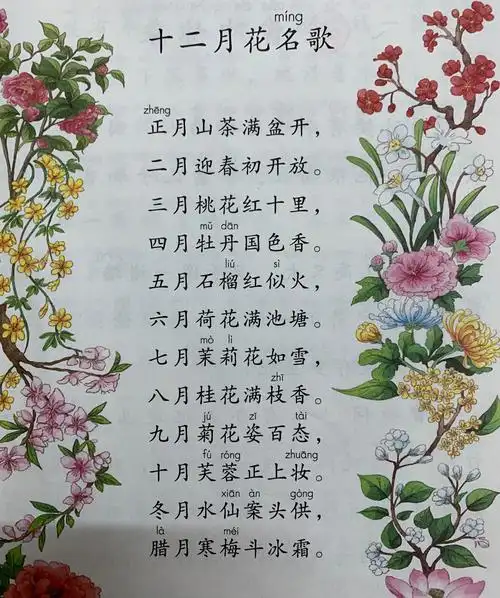 míng
十二月花名歌
zhēng
正月山茶满盆开，
二月迎春初开放。
三月桃花红十里，
mǔ dān
四月牡丹国色香。
liú sì
五月石榴红似火，
六月荷花满池塘。
mò lì
七月茉莉花如雪，
zhī
八月桂花满枝香。
jú zī tài
九月菊花姿百态，
fú róng zhuāng
十月芙蓉正上妆。
xiān àn gòng
冬月水仙案头供，
là méi
腊月寒梅斗冰霜。